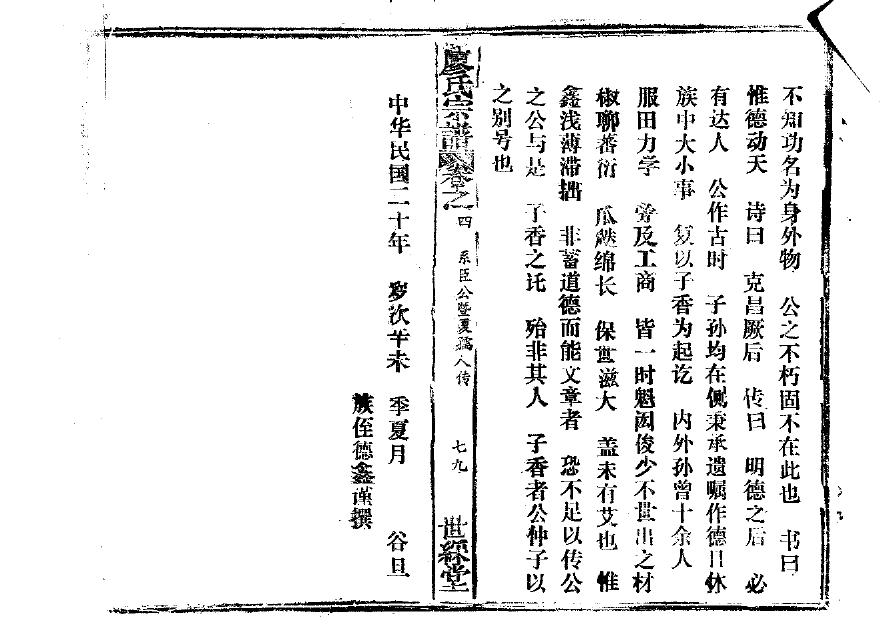 不知功名为身外物　公之不朽固不在此也　书曰
惟德动天　诗曰　克昌厥后　传曰　明德之后　必
有达人　公作古时　子孙均在侧秉承遗嘱作德日休
族中大小事　复以子香为起讫　内外孙曾十余人
服田力学　旁及工商　皆一时魁闳俊少不世出之材
椒聊蕃衍　瓜瓞绵长　保世滋大　盖未有艾也　惟
鑫浅薄滞拙　非蓄道德而能文章者　恐不足以传公
之公与是　子香之讬　殆非其人　子香者公仲子以
之别号也
廖氏宗谱　卷之四　系臣公暨夏孺人传　七九　世䌽堂
中华民国二十年　岁次辛未　季夏月　谷旦
族侄德鑫谨撰